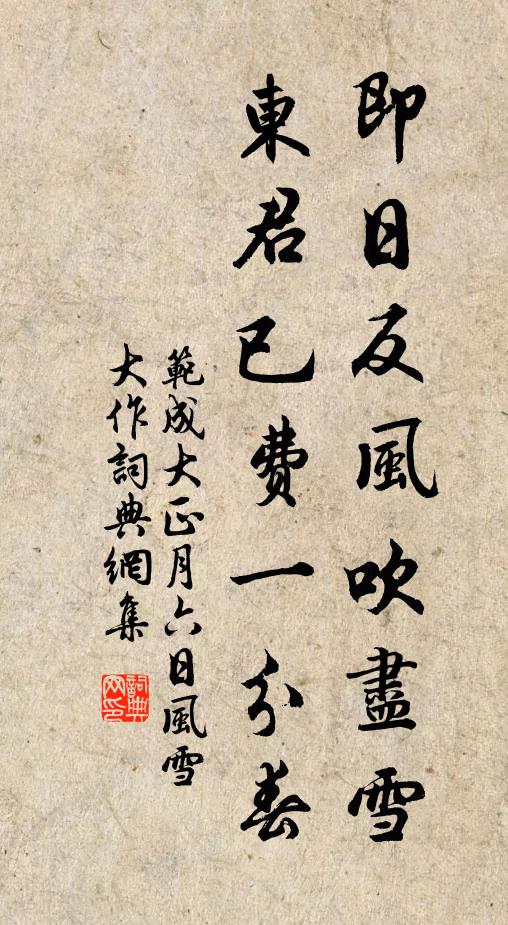 即日反風吹盡雪
東君已費一分春
範成大正月六日風雪
大作詞典網集
詞典
网印